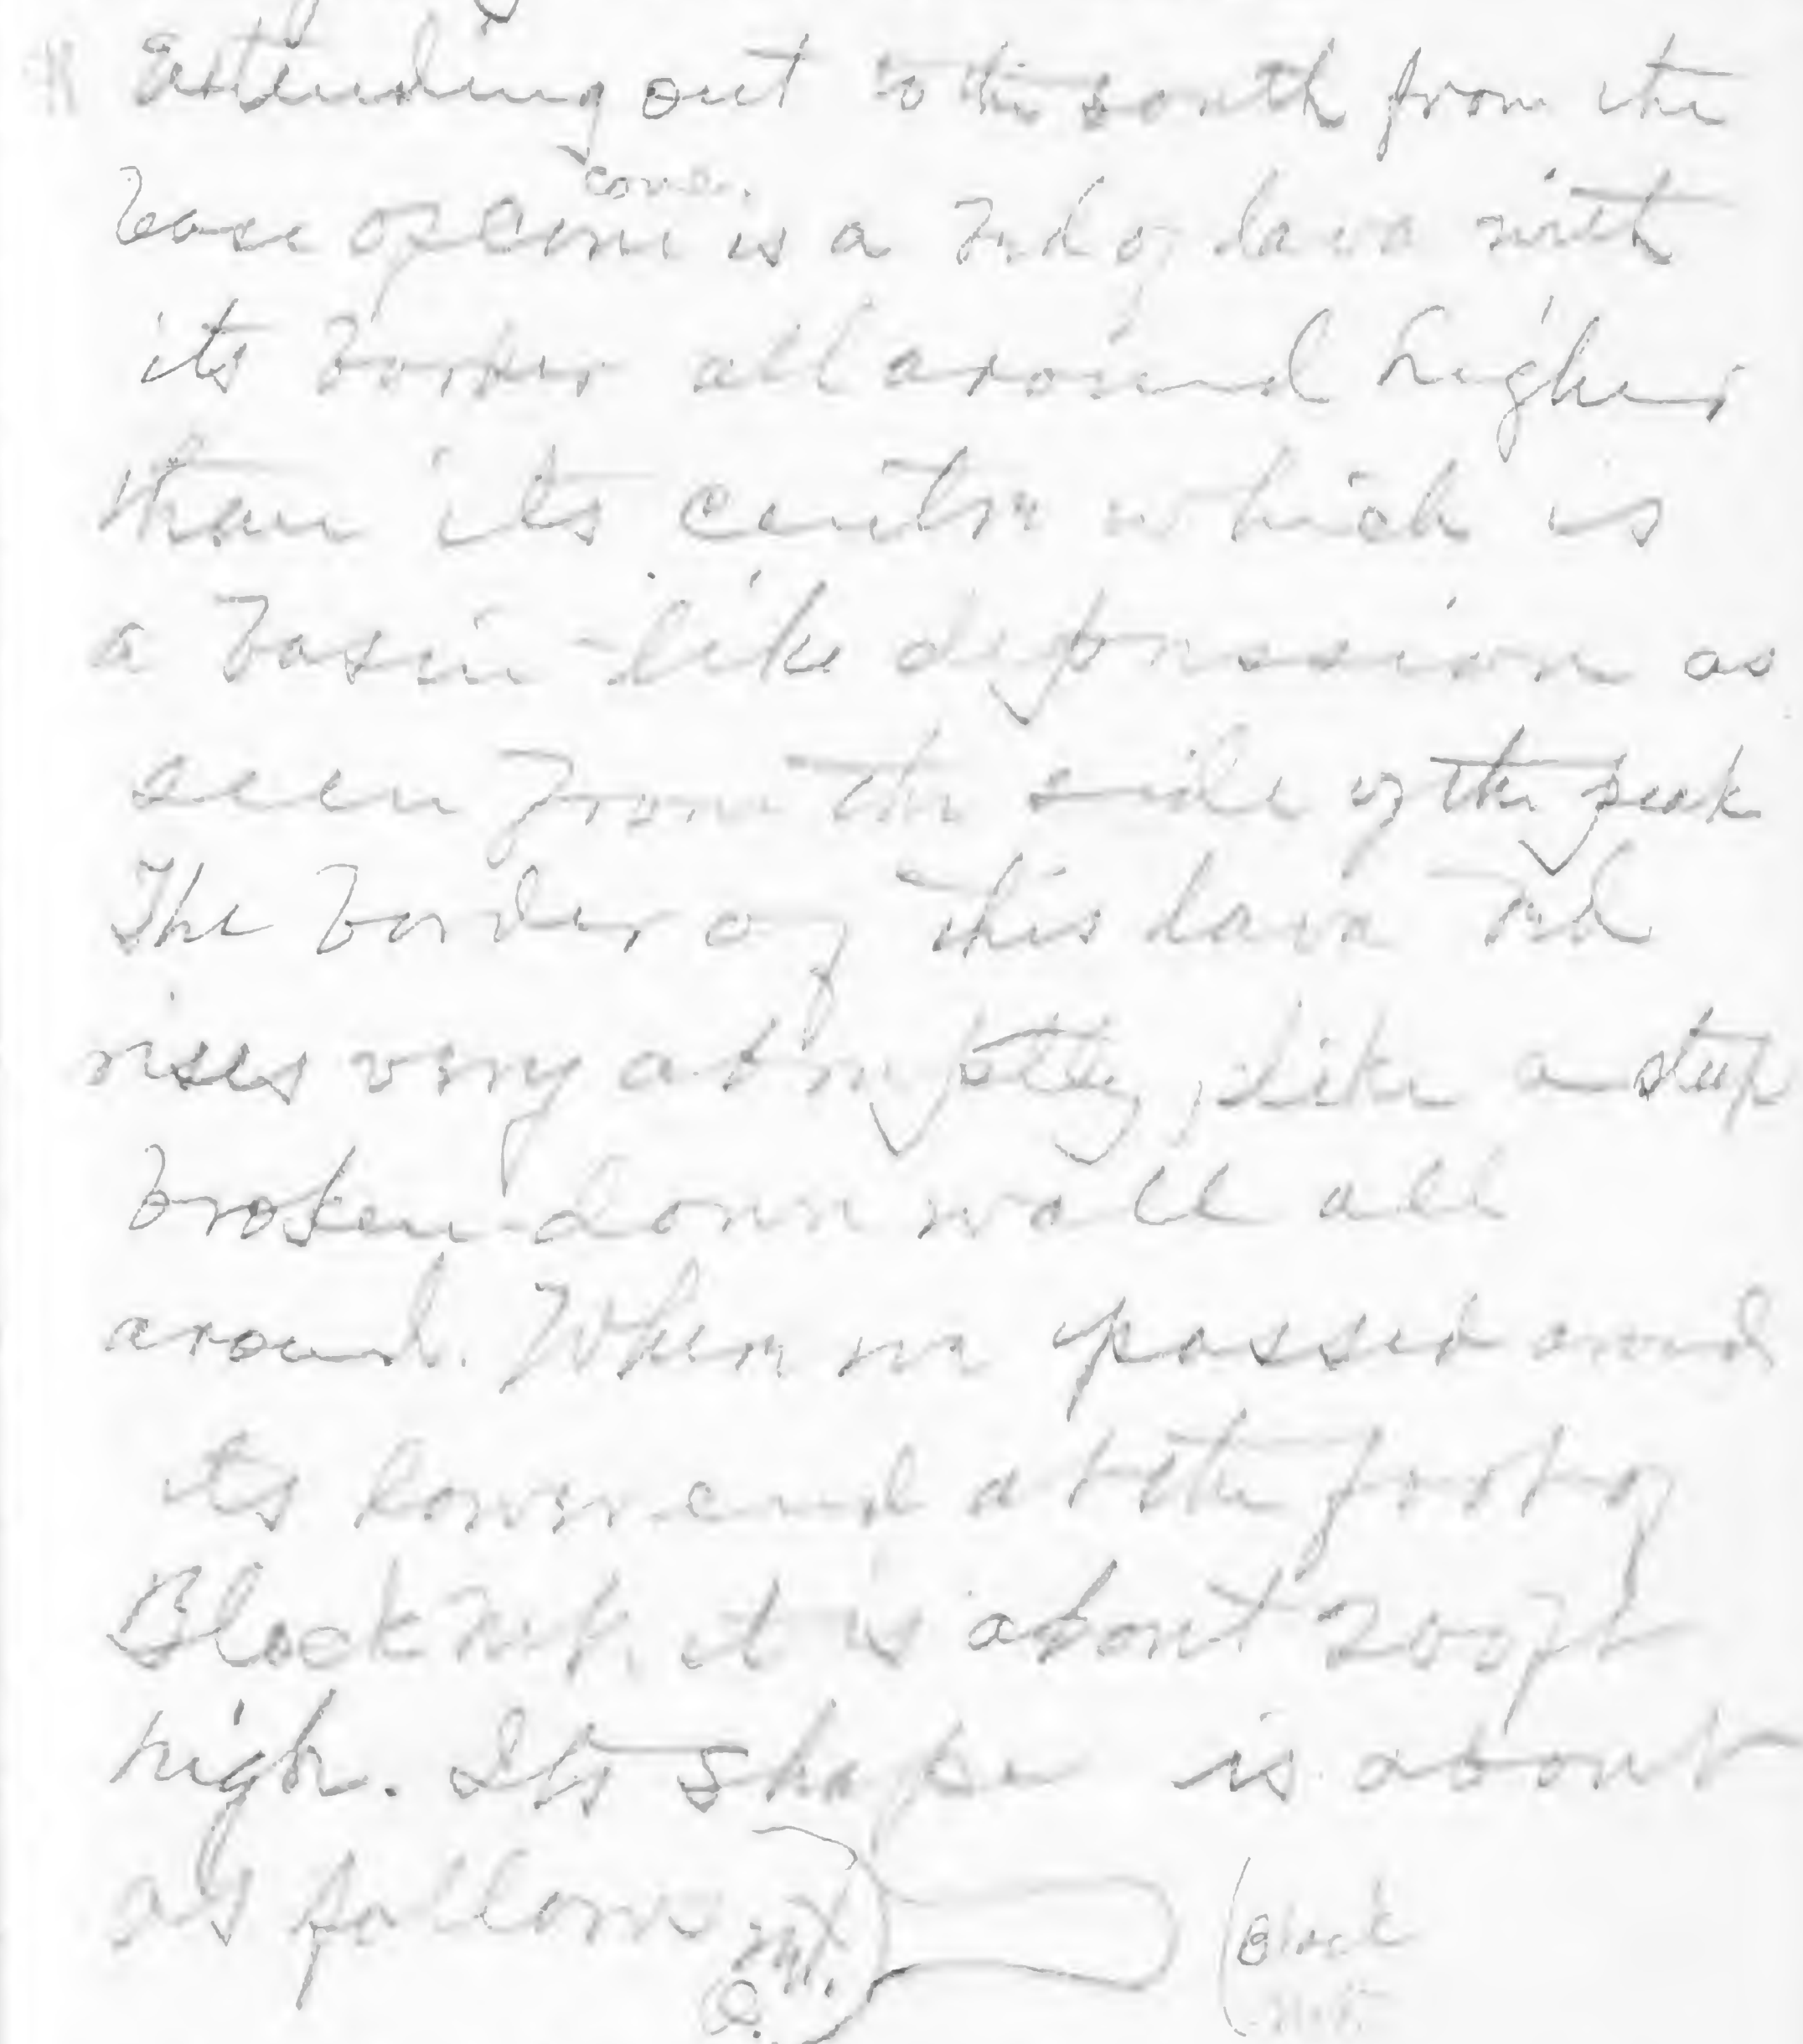 Extending out to the south from the
cone.
base of cone is a bed of lava with
its border all around higher
than its center which is
a basin-like depression as
seen from the side of the peak
The border of this lava bed
rises very abruptly, like a steep
broken-down wall all
around. When we passed around
its lower end at the foot of
Black Mt. it is about 200 ft
high. Its shape is about
as follows
Mt.
Black
Mt.